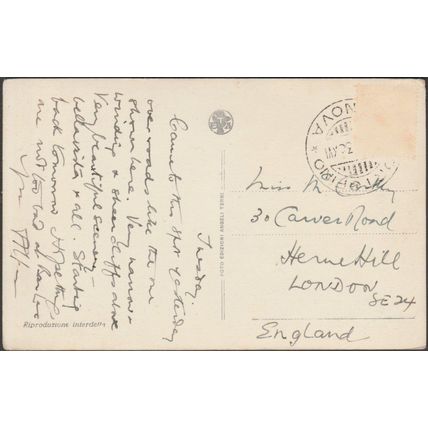 Tuesday.
Came to this spot yesterday
over roads like the one
shown here. Very narrow &
winding & sheer cliffs above
Very beautiful scenery –
& all. Starting
back tomorrow. Hope things
are not too bad at
FOTO EDIZIONI ANGELI TERNI
Riproduzione interdetta
NOVA
Miss M.
30 Carver Road
Herne Hill
LONDON
SE24
England